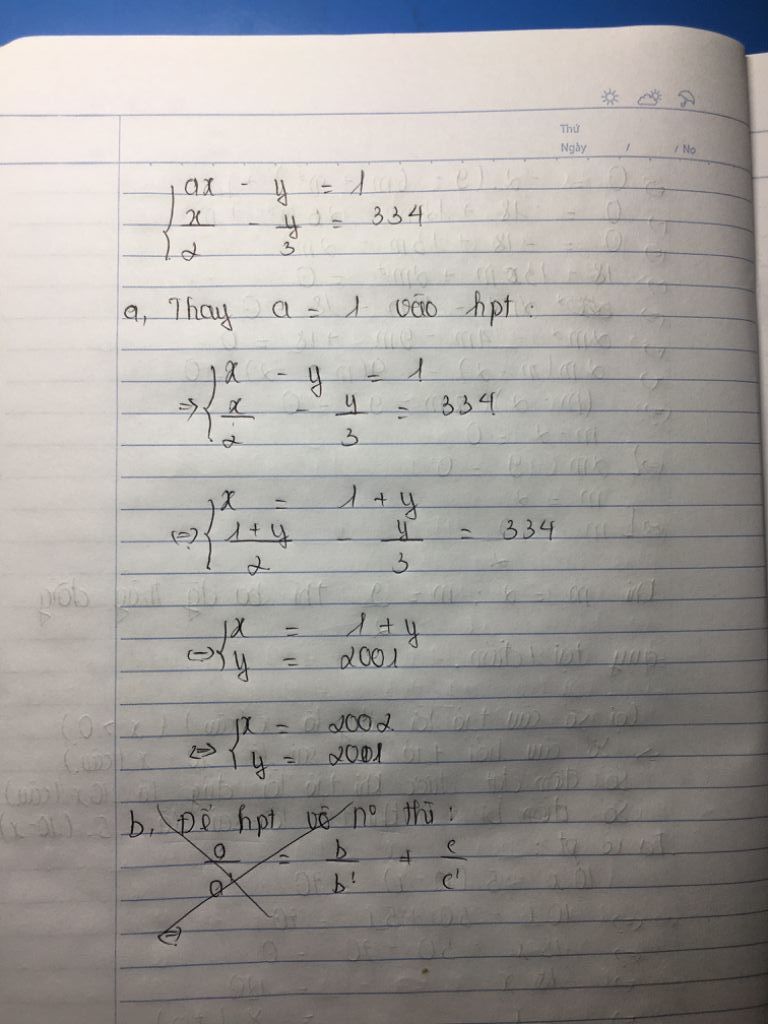 Thứ
Ngày / / No
{ ax - y = 1
x/2 - y/3 = 334
a, Thay a = 1 vào hpt:
=> { x - y = 1
x/2 - y/3 = 334
<=> { x = 1 + y
(1+y)/2 - y/3 = 334
<=> { x = 1 + y
y = 2001
<=> { x = 2002
y = 2001
b, Để hpt vô nº thì:
a/a' = b/b' ≠ c/c'
<=>